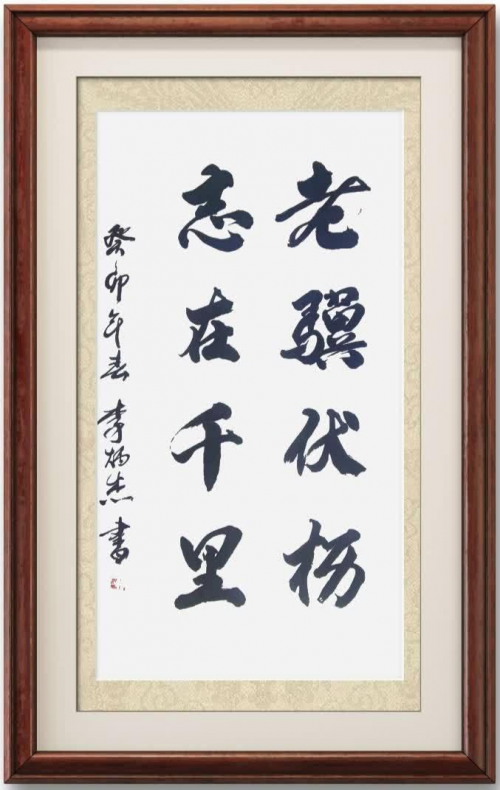 老骥伏枥
志在千里
癸卯年春 李炳杰书